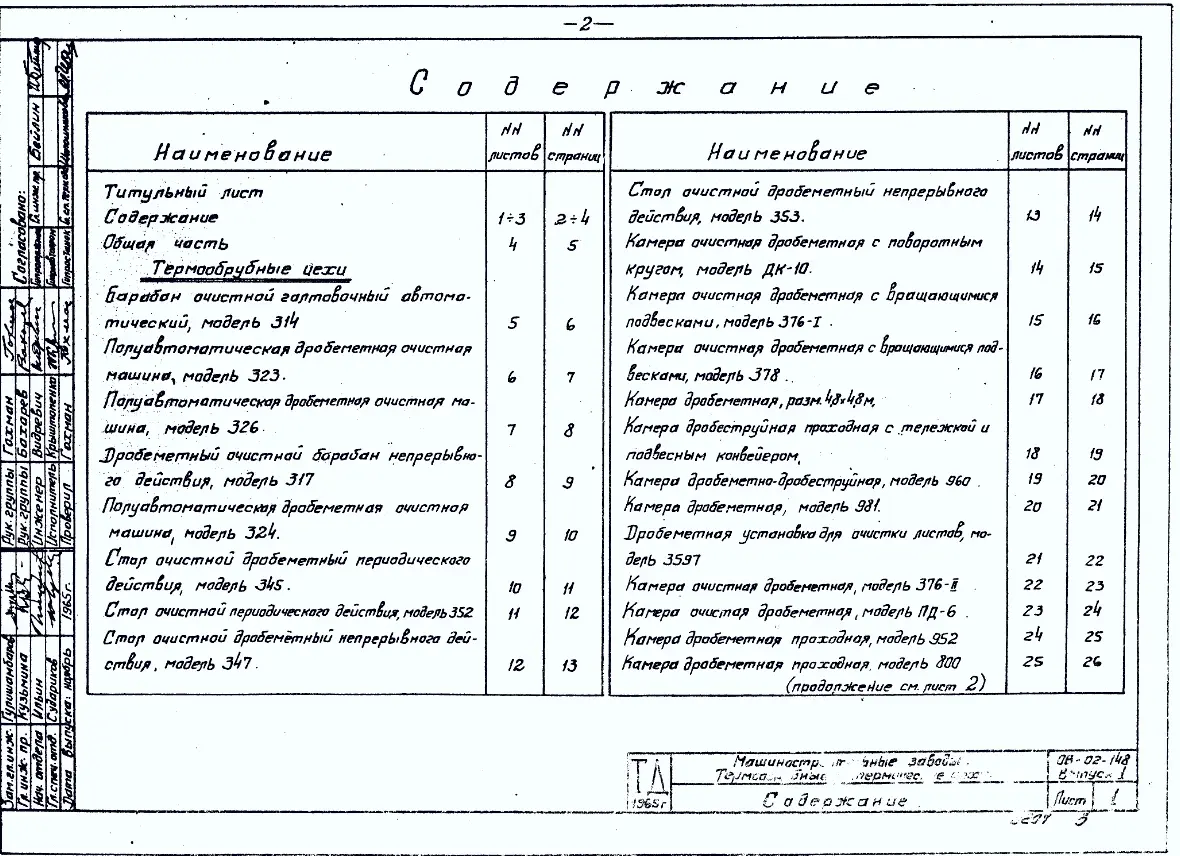 -2-
Содержание
Наименование
NN листов
NN страниц
Титульный лист
Содержание 1÷3 2÷4
Общая часть 4 5
Термообрубные цехи
Барабан очистной галтовочный автома-
тический, модель 314 5 6
Полуавтоматическая дробеметная очистная
машина, модель 323. 6 7
Полуавтоматическая дробеметная очистная ма-
шина, модель 326 7 8
Дробеметный очистной барабан непрерывно-
го действия, модель 317 8 9
Полуавтоматическая дробеметная очистная
машина, модель 324. 9 10
Стол очистной дробеметный периодического
действия, модель 345. 10 11
Стол очистной периодического действия, модель 352 11 12
Стол очистной дробемётный непрерывного дей-
ствия, модель 347. 12 13
Наименование
NN листов
NN страниц
Стол очистной дробеметный непрерывного
действия, модель 353. 13 14
Камера очистная дробеметная с поворотным
кругом, модель ДК-10. 14 15
Камера очистная дробеметная с вращающимися
подвесками, модель 376-I. 15 16
Камера очистная дробеметная с вращающимися под-
весками, модель 378.. 16 17
Камера дробеметная, разм. 4,8х4,8м, 17 18
Камера дробеструйная проходная с тележкой и
подвесным конвейером, 18 19
Камера дробеметно-дробеструйная, модель 960. 19 20
Камера дробеметная, модель 981. 20 21
Дробеметная установка для очистки листов, мо-
дель 3597 21 22
Камера очистная дробеметная, модель 376-II. 22 23
Камера очистая дробеметная, модель ПД-6. 23 24
Камера дробеметная проходная, модель 952 24 25
Камера дробеметная проходная, модель 800 25 26
(продолжение см. лист 2)
Согласовано:
Бейлин
Зам. гл. инж. Гулишамбаров
Гл. инж. пр. Кузьмина
Нач. отдела Ильин
Гл. спец. отд. Судариков
Дата выпуска: ноябрь 1965г.
Рук. группы Гохман
Рук. группы Бахарев
Инженер Видревич
Исполнитель Крыштопенко
Проверил Гохман
ТД
1965г
заводы.
Содержание
ОВ-02-148
Выпуск 1
Лист 1